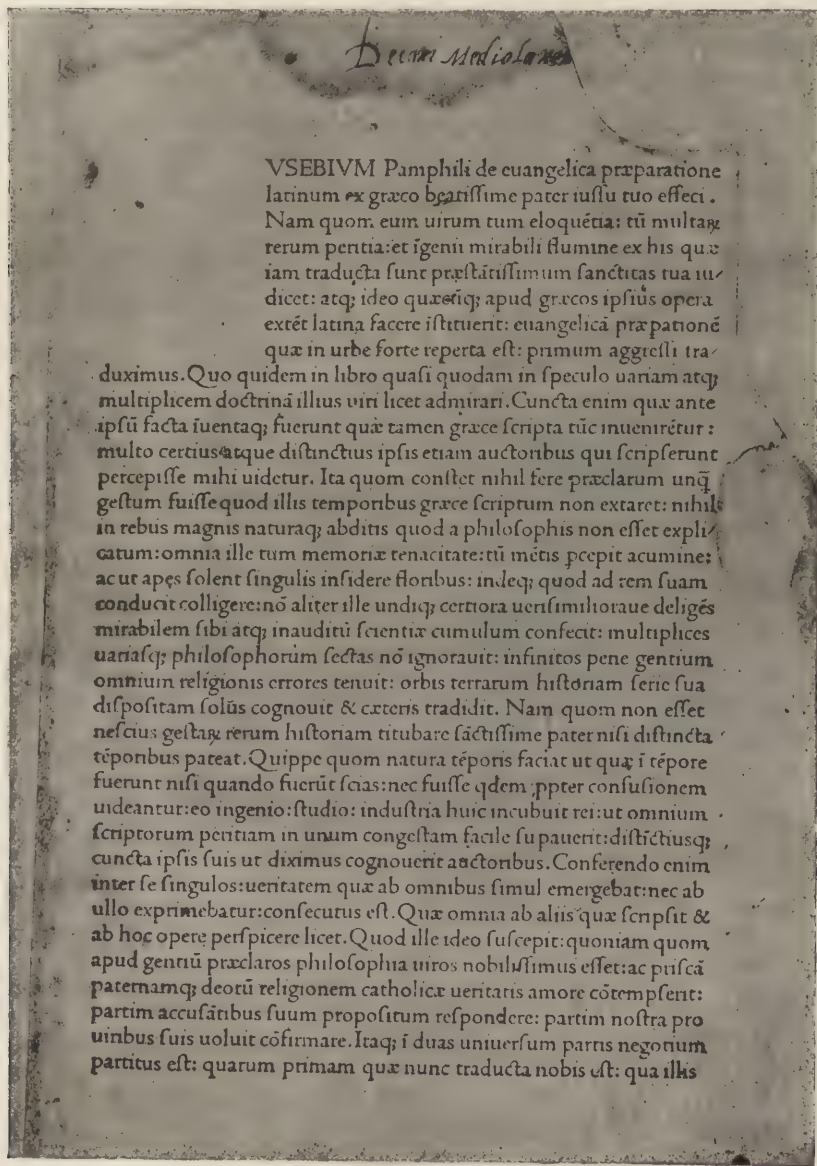 Decini Mediolanen
VSEBIVM Pamphili de euangelica præparatione
latinum ex græco beatissime pater iussu tuo effeci.
Nam quom eum uirum tum eloquẽtia: tũ multaꝝ
rerum peritia: et ĩgenii mirabili flumine ex his quæ
iam traducta sunt præstãtissimum sanctitas tua iu-
dicet: atqꝫ ideo quæcũqꝫ apud græcos ipsius opera
extẽt latina facere ĩstituerit: euangelicã præpationẽ
quæ in urbe forte reperta est: primum aggressi tra-
duximus. Quo quidem in libro quasi quodam in speculo uariam atqꝫ
multiplicem doctrinã illius uiri licet admirari. Cuncta enim quæ ante
ipsũ facta ĩuentaqꝫ fuerunt quæ tamen græce scripta tũc inuenirẽtur:
multo certius atque distinctius ipsis etiam auctoribus qui scripserunt
percepisse mihi uidetur. Ita quom constet nihil fere præclarum unq̃
gestum fuisse quod illis temporibus græce scriptum non extaret: nihil
in rebus magnis naturaqꝫ abditis quod a philosophis non esset expli-
catum: omnia ille tum memoriæ tenacitate: tũ mẽtis ꝑcepit acumine:
ac ut apes solent singulis insidere floribus: indeqꝫ quod ad rem suam
conducit colligere: nõ aliter ille undiqꝫ certiora uerisimilioraue deligẽs
mirabilem sibi atqꝫ inauditũ scientiæ cumulum confecit: multiplices
uariasqꝫ philosophorum sectas nõ ignorauit: infinitos pene gentium
omnium religionis errores tenuit: orbis terrarum historiam serie sua
dispositam solus cognouit & cæteris tradidit. Nam quom non esset
nescius gestaꝝ rerum historiam titubare sãctissime pater nisi distincta
tẽporibus pateat. Quippe quom natura tẽporis faciat ut quæ ĩ tẽpore
fuerunt nisi quando fuerũt scias: nec fuisse qdem ꝓpter confusionem
uideantur: eo ingenio: studio: industria huic incubuit rei: ut omnium
scriptorum peritiam in unum congestam facile supauerit: distĩctiusqꝫ
cuncta ipsis suis ut diximus cognouerit auctoribus. Conferendo enim
inter se singulos: ueritatem quæ ab omnibus simul emergebat: nec ab
ullo exprimebatur: consecutus est. Quæ omnia ab aliis quæ scripsit &
ab hoc opere perspicere licet. Quod ille ideo suscepit: quoniam quom
apud gentiũ præclaros philosophia uiros nobilissimus esset: ac priscã
paternamqꝫ deorũ religionem catholicæ ueritatis amore cõtempserit:
partim accusãtibus suum propositum respondere: partim nostra pro
uiribus suis uoluit cõfirmare. Itaqꝫ ĩ duas uniuersum partis negotium
partitus est: quarum primam quæ nunc traducta nobis est: qua illis